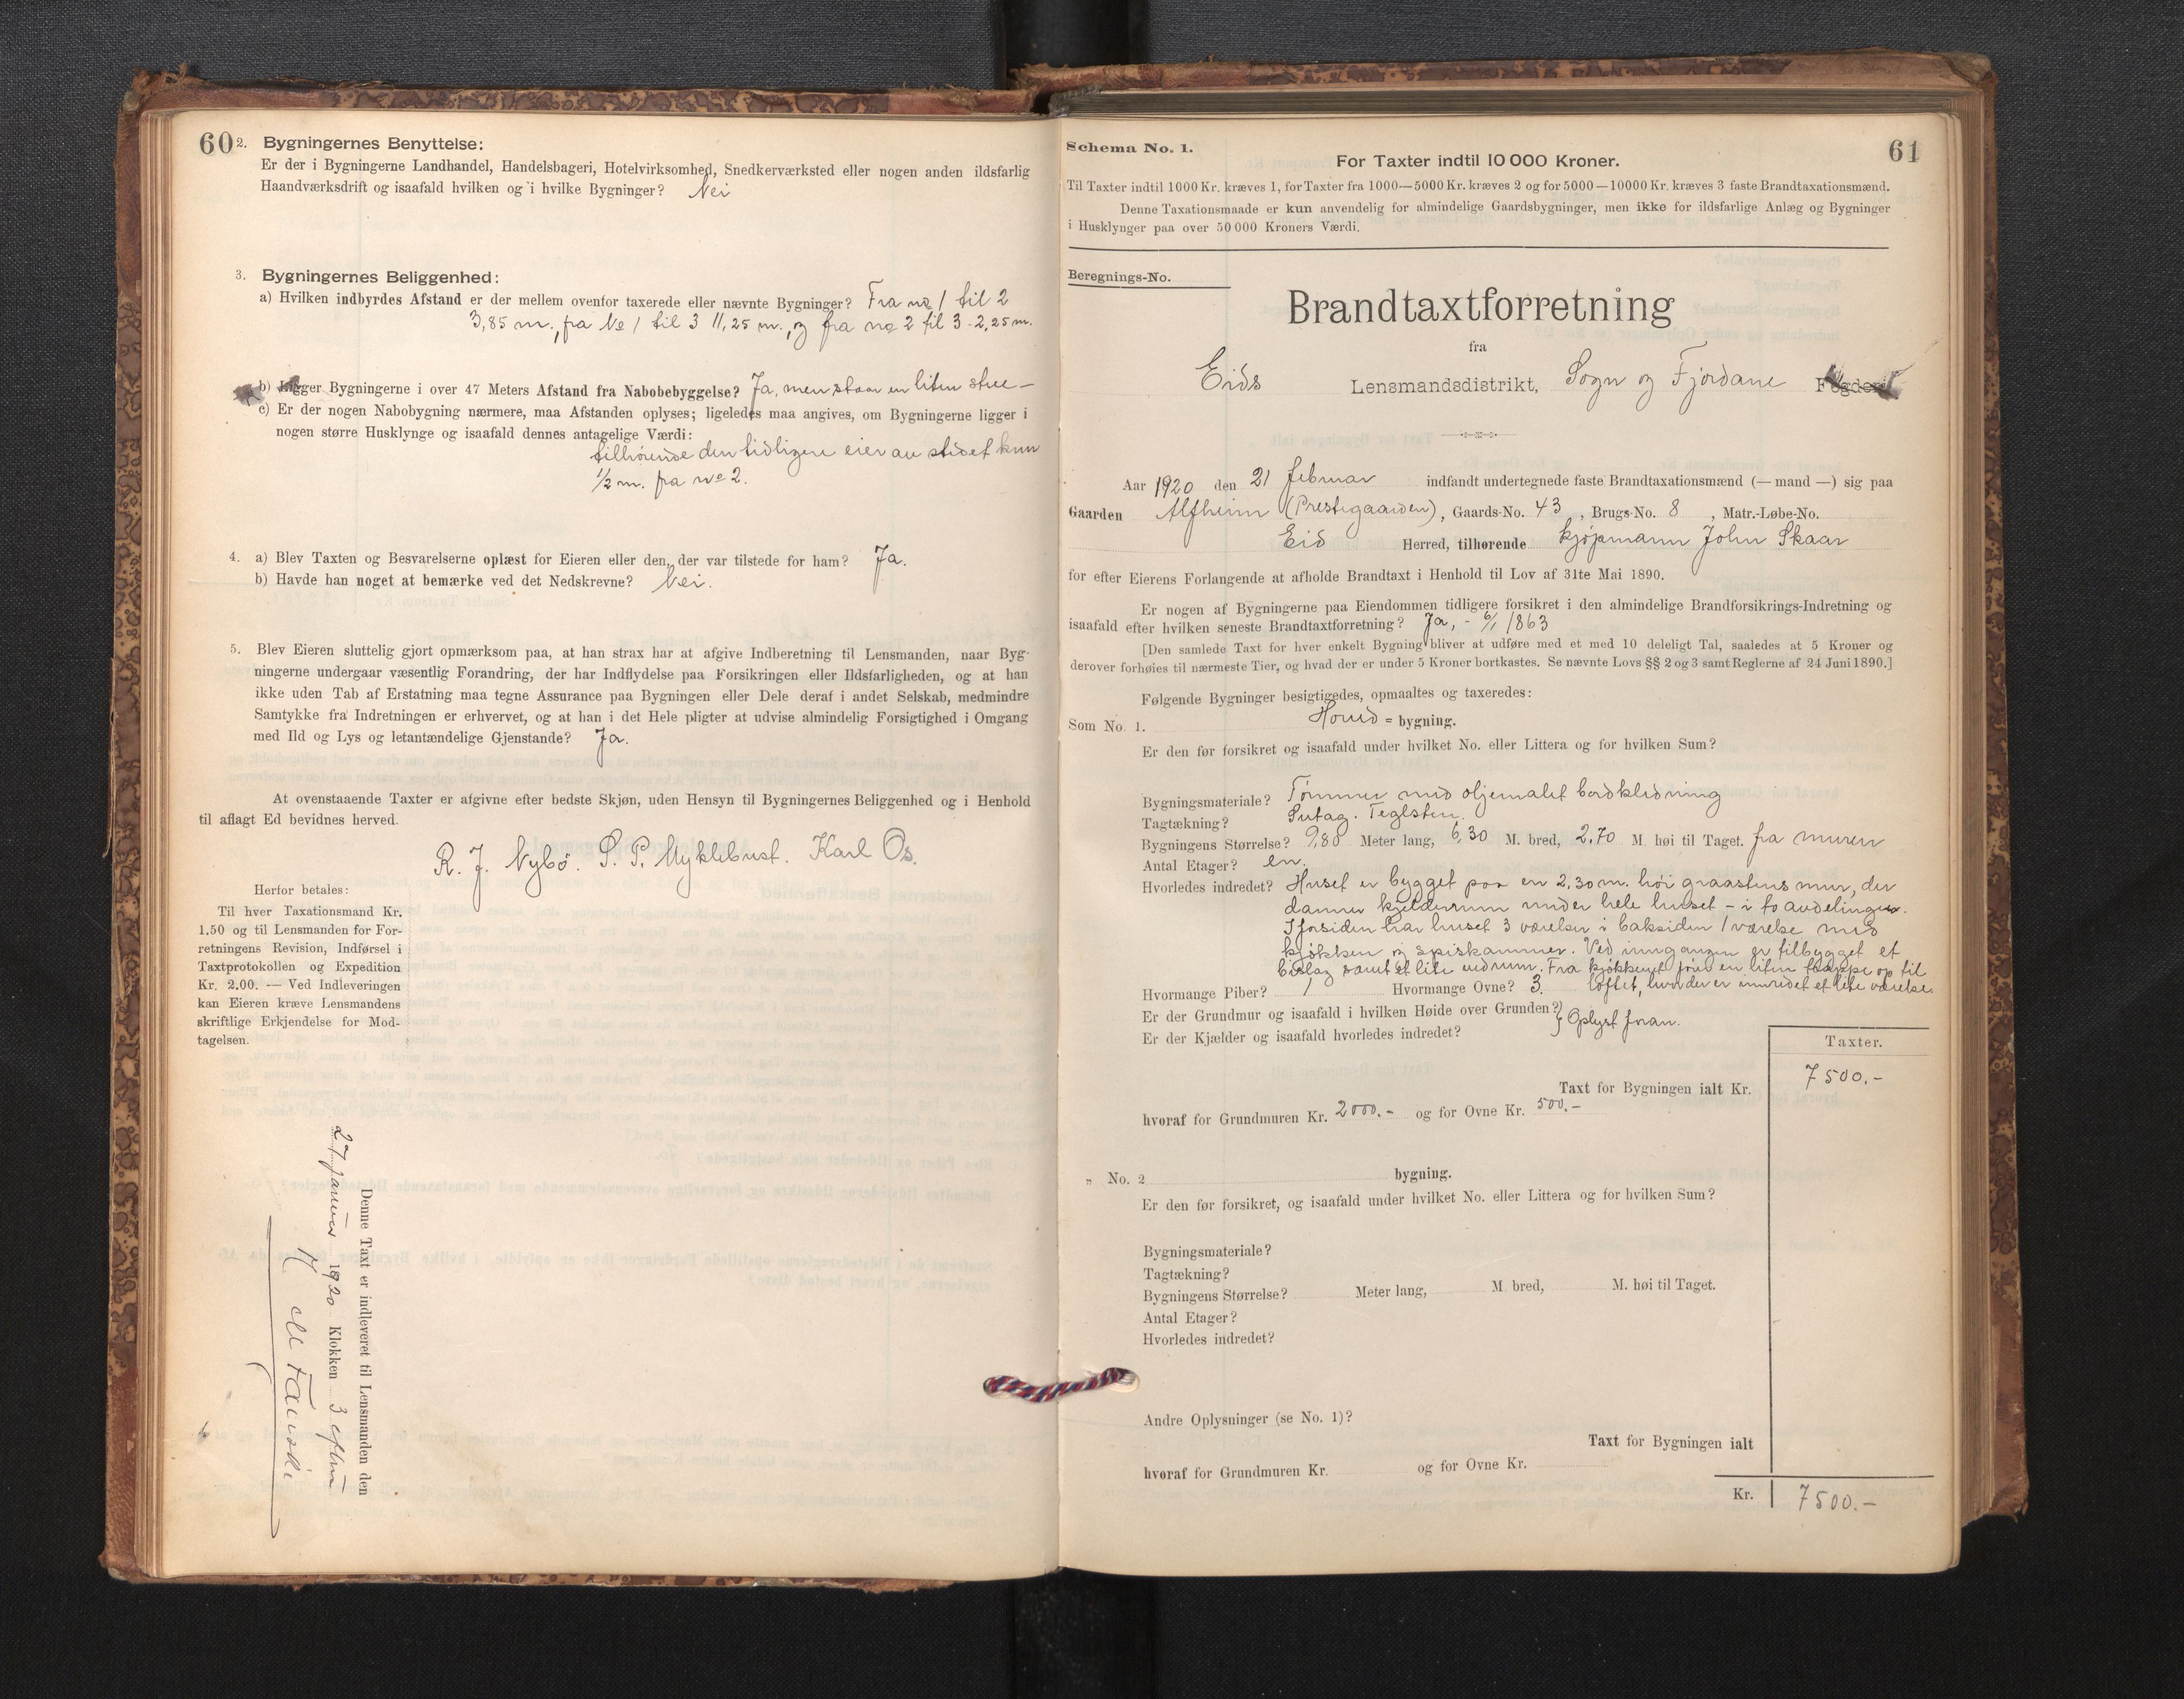 60
2. Bygningernes Benyttelse:
Er der i Bygningerne Landhandel, Handelsbageri, Hotelvirksomhed, Snedkerværksted eller nogen anden ildsfarlig
Haandværksdrift og isaafald hvilken og i hvilke Bygninger? Nei
3. Bygningernes Beliggenhed:
a) Hvilken indbyrdes Afstand er der mellem ovenfor taxerede eller nævnte Bygninger? Fra no 1 til 2
3,85 m., fra No 1 til 3 11,25 m., og fra no 2 til 3 - 2,25 m.
b) Ligger Bygningerne i over 47 Meters Afstand fra Nabobebyggelse? Ja, men staar en liten stue –
c) Er der nogen Nabobygning nærmere, maa Afstanden oplyses; ligeledes maa angives, om Bygningerne ligger i
nogen større Husklynge og isaafald dennes antagelige Værdi:
tilhørende den tidligere eier av stedet kun
1/2 m. fra no 2.
4. a) Blev Taxten og Besvarelserne oplæst for Eieren eller den, der var tilstede for ham? Ja.
b) Havde han noget at bemærke ved det Nedskrevne? Nei.
5. Blev Eieren sluttelig gjort opmærksom paa, at han strax har at afgive Indberetning til Lensmanden, naar Byg-
ningerne undergaar væsentlig Forandring, der har Indflydelse paa Forsikringen eller Ildsfarligheden, og at han
ikke uden Tab af Erstatning maa tegne Assurance paa Bygningen eller Dele deraf i andet Selskab, medmindre
Samtykke fra Indretningen er erhvervet, og at han i det Hele pligter at udvise almindelig Forsigtighed i Omgang
med Ild og Lys og letantændelige Gjenstande? Ja.
At ovenstaaende Taxter er afgivne efter bedste Skjøn, uden Hensyn til Bygningernes Beliggenhed og i Henhold
til aflagt Ed bevidnes herved.
R. J. Nybø. S. P. Myklebust. Karl Os.
Herfor betales:
Til hver Taxationsmand Kr.
1,50 og til Lensmanden for For-
retningens Revision, Indførsel i
Taxtprotokollen og Expedition
Kr. 2,00. — Ved Indleveringen
kan Eieren kræve Lensmandens
skriftlige Erkjendelse for Mod-
tagelsen.
Denne Taxt er indleveret til Lensmanden den
27 januar 1920 Klokken 3 efterm
61
Schema No. 1.
For Taxter indtil 10 000 Kroner.
Til Taxter indtil 1000 Kr. kræves 1, for Taxter fra 1000—5000 Kr. kræves 2 og for 5000—10000 Kr. kræves 3 faste Brandtaxationsmænd.
Denne Taxationsmaade er kun anvendelig for almindelige Gaardsbygninger, men ikke for ildsfarlige Anlæg og Bygninger
i Husklynger paa over 50 000 Kroners Værdi.
Beregnings-No.
Brandtaxtforretning
fra
Eids Lensmandsdistrikt, Sogn og Fjordane Fogderi
Aar 1920 den 21 februar indfandt undertegnede faste Brandtaxationsmænd (— mand —) sig paa
Gaarden Alfheim (Prestegaarden), Gaards-No. 43, Brugs-No. 8, Matr.-Løbe-No.
Eid Herred, tilhørende kjøpmann John Skaar
for efter Eierens Forlangende at afholde Brandtaxt i Henhold til Lov af 31te Mai 1890.
Er nogen af Bygningerne paa Eiendommen tidligere forsikret i den almindelige Brandforsikrings-Indretning og
isaafald efter hvilken seneste Brandtaxtforretning? Ja, - 6/1 1863
[Den samlede Taxt for hver enkelt Bygning bliver at udføre med et med 10 deleligt Tal, saaledes at 5 Kroner og
derover forhøies til nærmeste Tier, og hvad der er under 5 Kroner bortkastes. Se nævnte Lovs §§ 2 og 3 samt Reglerne af 24 Juni 1890.]
Følgende Bygninger besigtigedes, opmaaltes og taxeredes:
Som No. 1. Hoved = bygning.
Er den før forsikret og isaafald under hvilket No. eller Littera og for hvilken Sum?
Bygningsmateriale? Tømmer med oljemalet bordklædning
Tagtækning? Sutag. Teglsten.
Bygningens Størrelse? 9,80 Meter lang, 6,30 M. bred, 2,70 M. høi til Taget. fra muren
Antal Etager? en.
Hvorledes indredet? Huset er bygget paa en 2,30 m. høi graastens mur, der
danner kjelderrum under hele huset – i to avdelinger.
I forsiden har huset 3 værelser i baksiden 1 værelse med
kjøkken og spiskammer. Ved inngangen er tilbygget et
bislag samt et lite uderum. Fra kjøkkenet fører en liten trappe op til
Hvormange Piber? 1 Hvormange Ovne? 3. loftet, hvor der er innredet et lite værelse.
Er der Grundmur og isaafald i hvilken Høide over Grunden? } Oplyst foran.
Er der Kjælder og isaafald hvorledes indredet?
Taxter.
Taxt for Bygningen ialt Kr. 7500.-
hvoraf for Grundmuren Kr. 2000.- og for Ovne Kr. 500.-
„ No. 2 bygning.
Er den før forsikret, og isaafald under hvilket No. eller Littera og for hvilken Sum?
Bygningsmateriale?
Tagtækning?
Bygningens Størrelse? Meter lang, M. bred, M. høi til Taget.
Antal Etager?
Hvorledes indredet?
Andre Oplysninger (se No. 1)?
Taxt for Bygningen ialt
hvoraf for Grundmuren Kr. og for Ovne Kr.
Kr. 7500.-